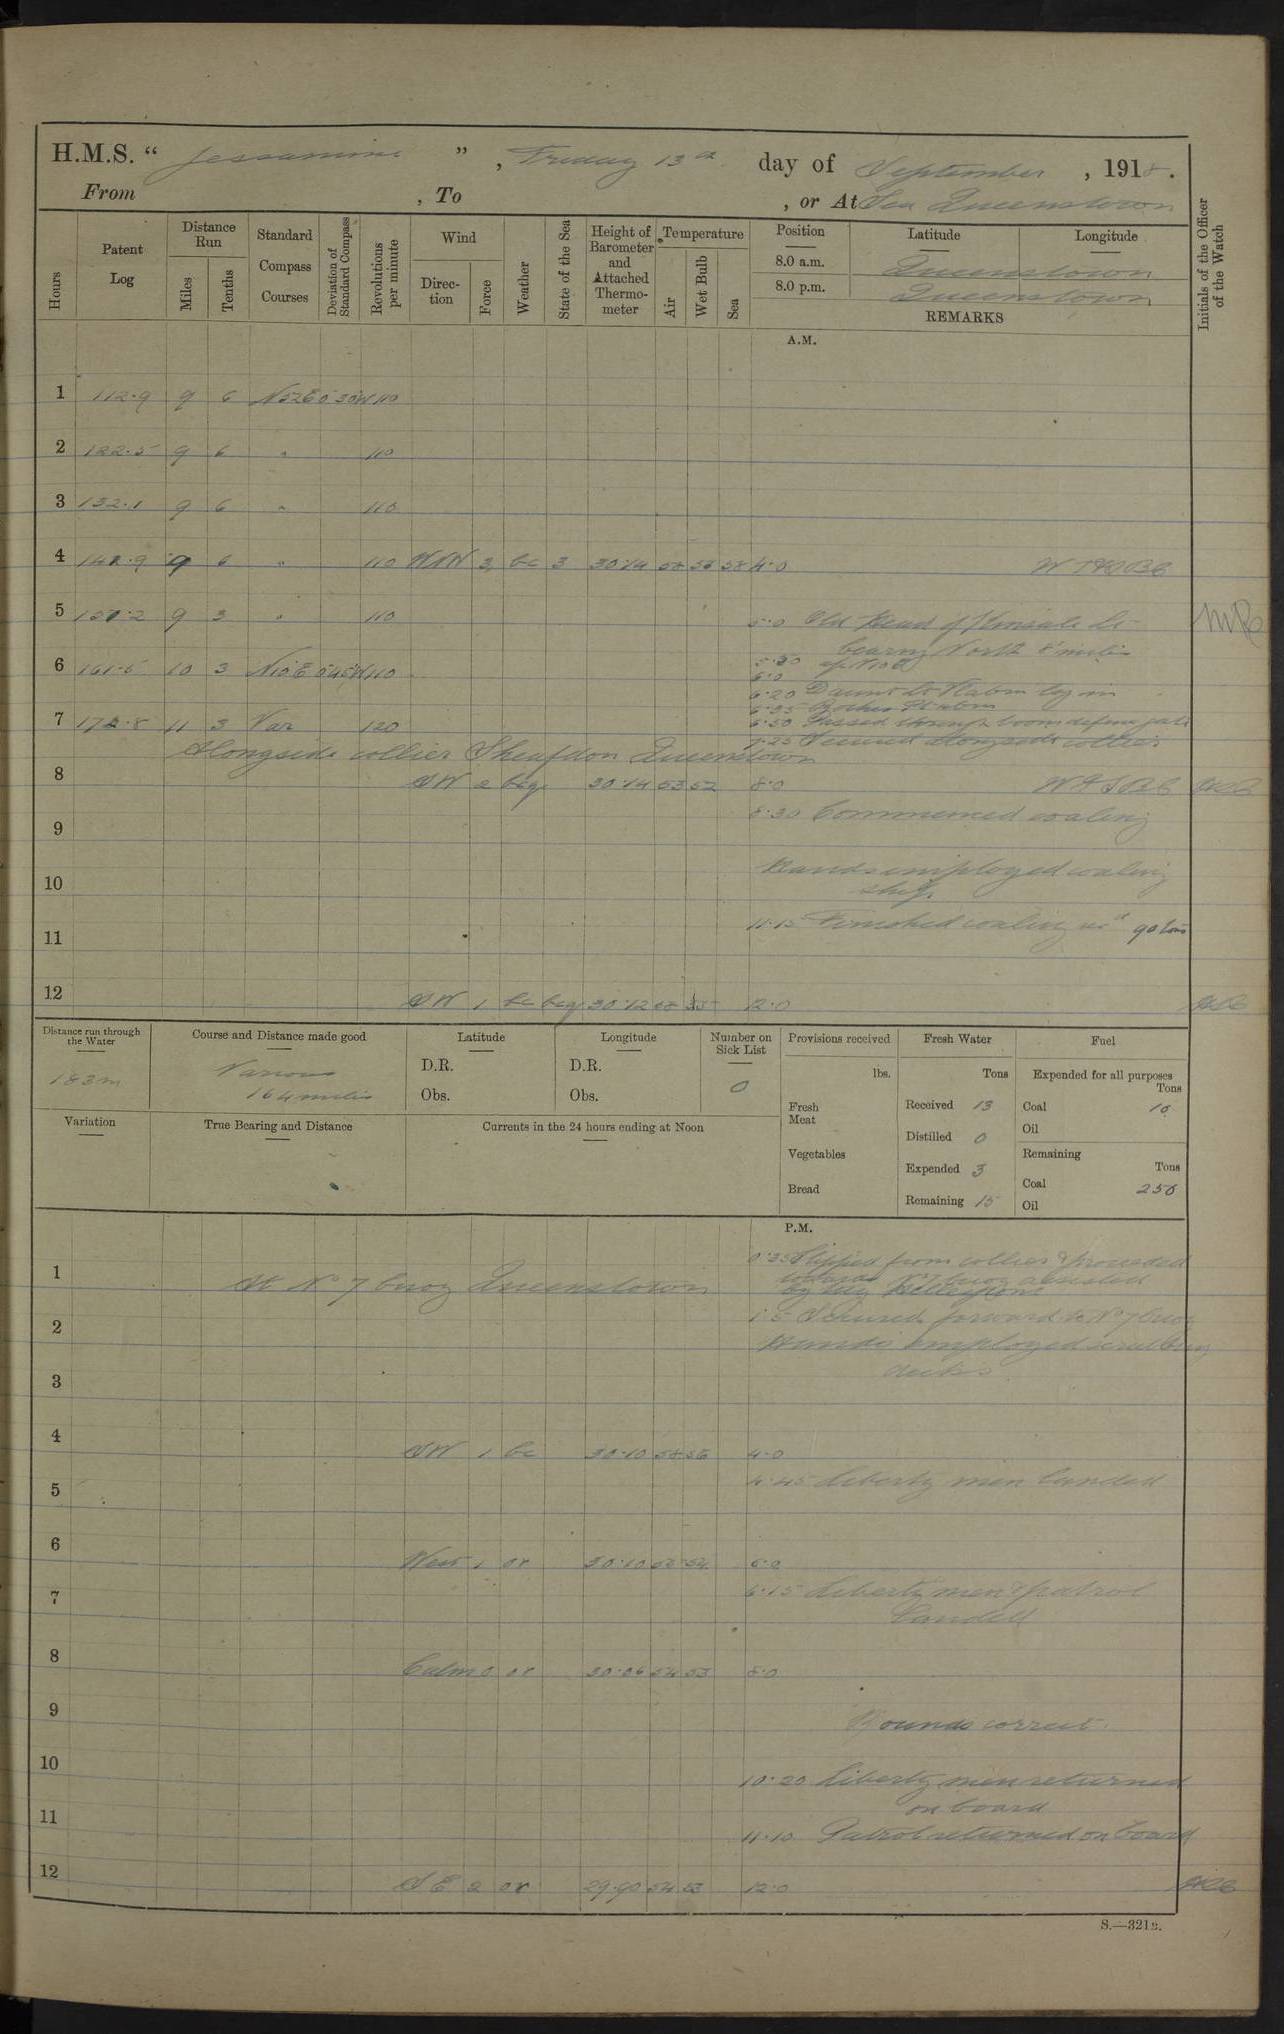 H.M.S. “ Jessamine ” , Friday 13th day of September , 1918 .
From , To , or At Sea Queenstown
Hours
Patent Log
Distance Run
Miles
Tenths
Standard Compass Courses
Deviation of Standard Compass
Revolutions per minute
Wind
Direction
Force
Weather
State of the Sea
Height of Barometer and Attached Thermometer
Temperature
Air
Wet Bulb
Sea
Position Latitude Longitude
8.0 a.m. Queenstown
8.0 p.m. Queenstown
REMARKS
Initials of the Officer of the Watch
A.M.
1 112.9 9 6 N52E 0 30W 110
2 122.5 9 6 " 110
3 132.1 9 6 " 110
4 141.9 9 6 " 110 WNW 3 bc 3 30.14 58 56 58 4.0
5 151.2 9 3 " 110
5.0 Old Head of Kinsale Lt
bearing North 8 miles
6 161.5 10 3 N10E 0 45W 110
5.30 N10E
6.0
6.20 Daunt Lt Vabm log in
6.35
6.50 Passed through boom defence gate
7 172.8 11 3 Var 120
7.25 Secured alongside collier
Alongside collier Sheafdon Queenstown
8 SW 2 bcq 30.14 53 52 8.0
8.30 Commenced coaling
9
Hands employed coaling
ship.
10
11.15 Finished coaling recd 90 tons
11
12 SW 1 bc bcq 30.12 58 55 12.0
Distance run through the Water
183m
Course and Distance made good
Various
164 miles
Latitude
D.R.
Obs.
Longitude
D.R.
Obs.
Number on Sick List
0
Provisions received
lbs.
Fresh Meat
Vegetables
Bread
Fresh Water
Tons
Received 13
Distilled 0
Expended 3
Remaining 15
Fuel
Expended for all purposes
Tons
Coal 10
Oil
Remaining
Tons
Coal 250
Oil
Variation
True Bearing and Distance
Currents in the 24 hours ending at Noon
P.M.
0.35 Slipped from collier & proceeded
towards No 7 buoy assisted
by tug Hellespont
1 At No 7 buoy Queenstown
1.5 Secured forward to No 7 buoy
2
Hands employed scrubbing
decks
3
4 SW 1 bc 30.10 58 56 4.0
4.45 Liberty men landed
5
6 West 1 or 30.10 56 54 6.0
6.15 Liberty men & patrol
landed
7
8 Calm 0 or 30.06 54 53 8.0
9 Rounds correct.
10
10.20 Liberty men returned
on board
11
11.10 Patrol returned on board
12 SE 2 or 29.90 54 53 12.0
S.—321B.